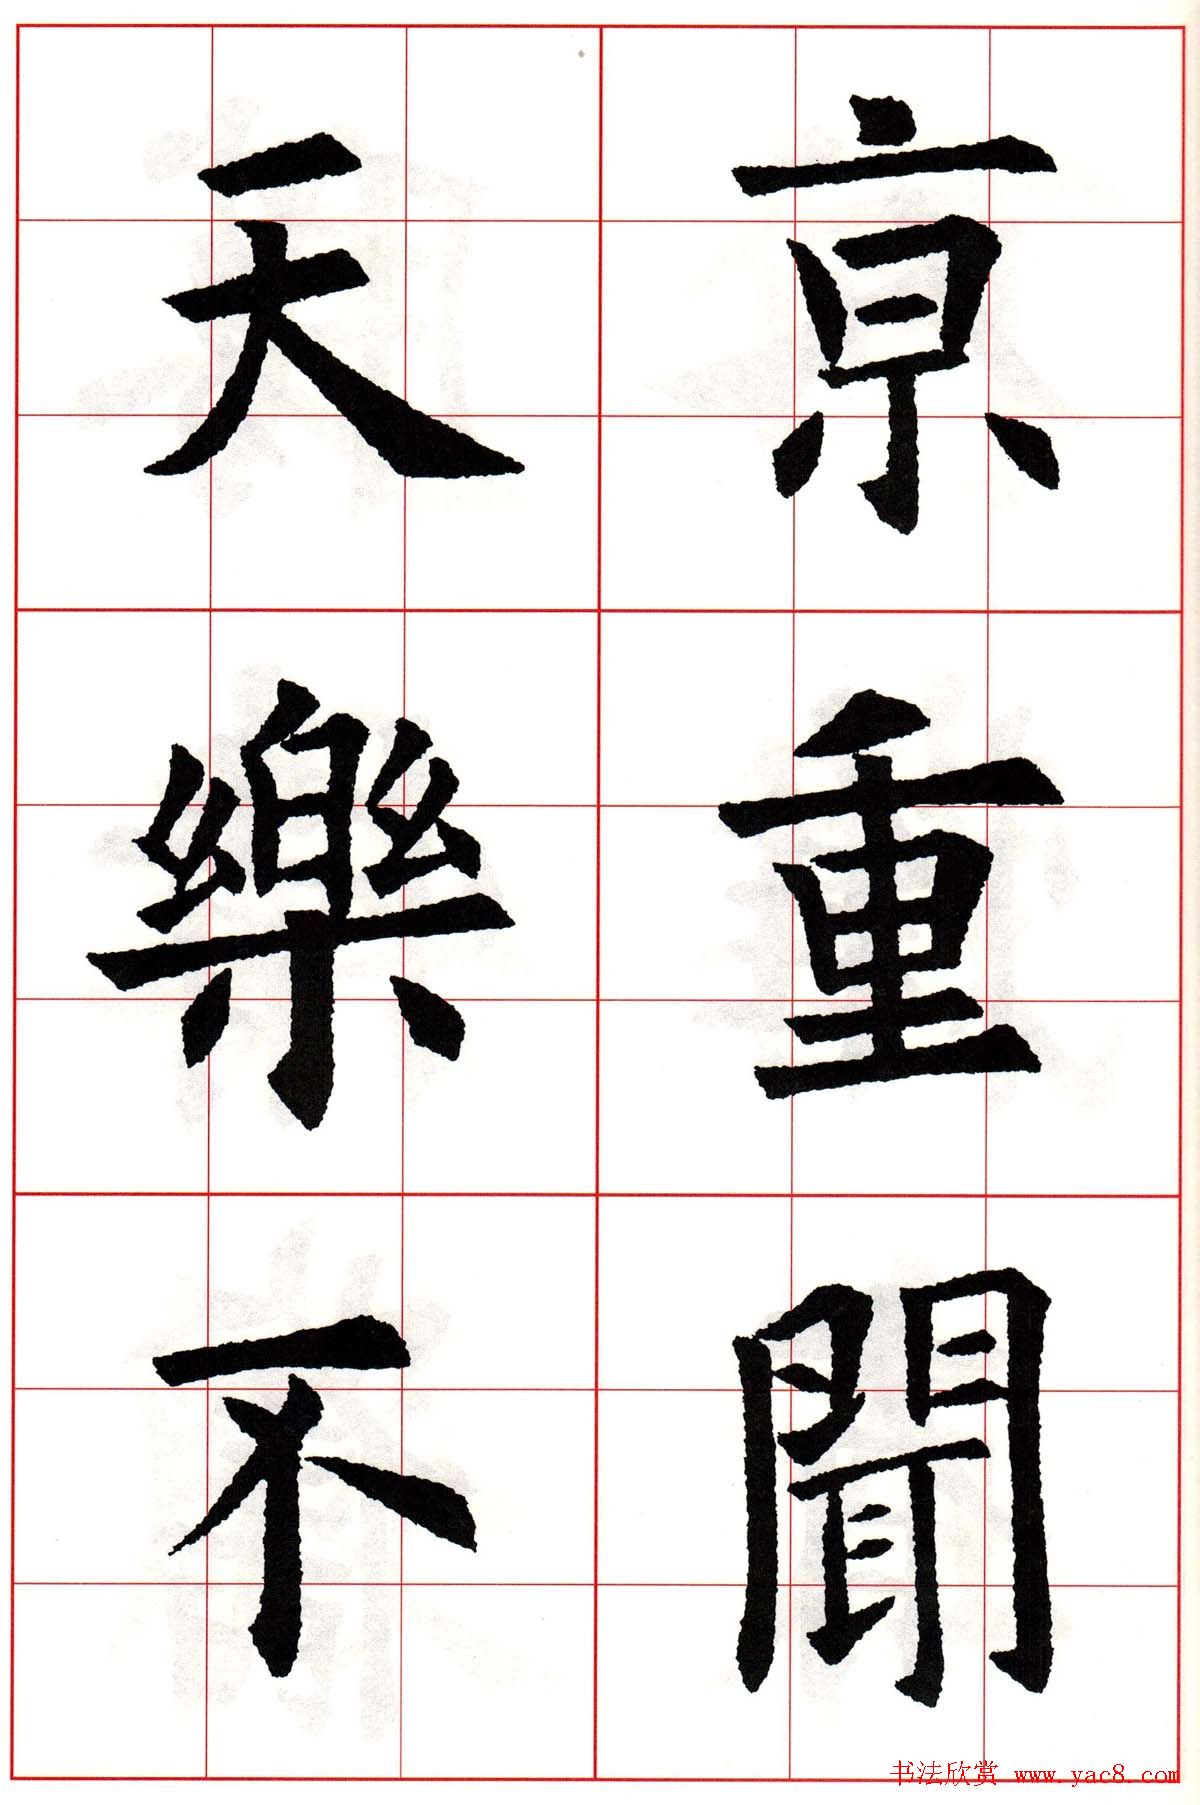 京重聞
天樂不
书法欣赏 www.yac8.com